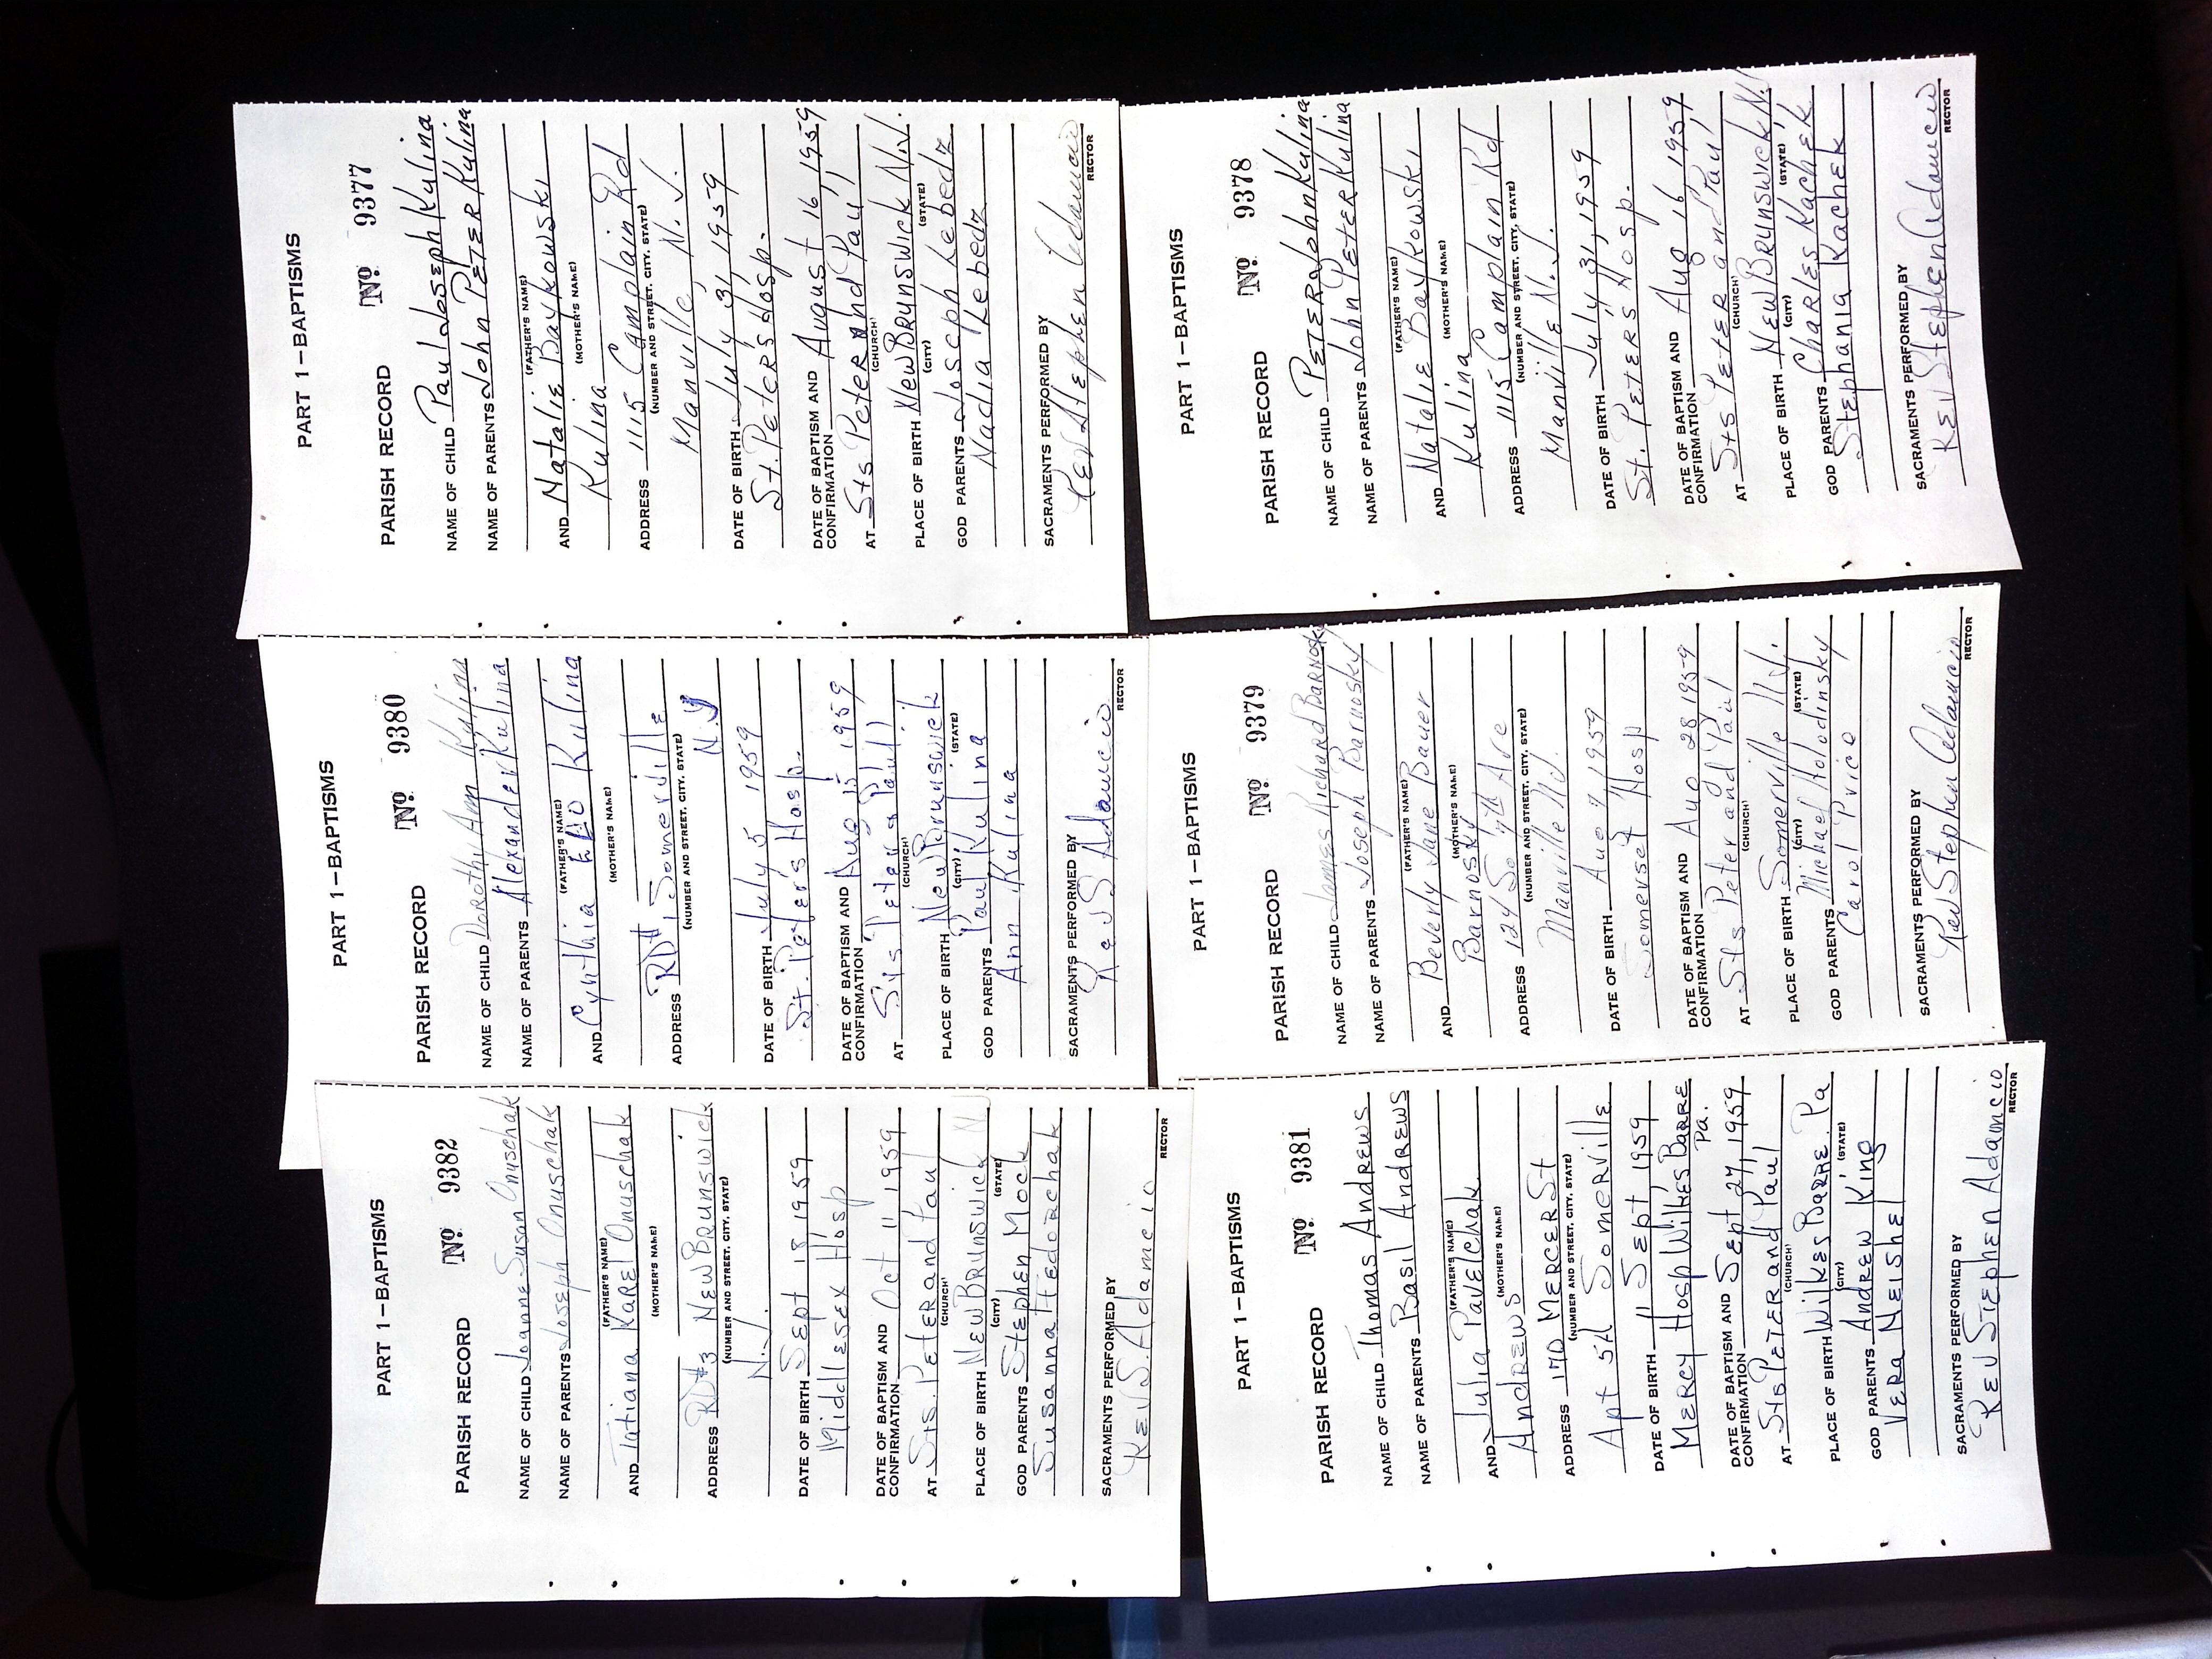 PART 1—BAPTISMS
PARISH RECORD No 9382
NAME OF CHILD Joanne Susan Onuschak
NAME OF PARENTS Joseph Onuschak
(FATHER'S NAME)
AND Tatiana Karel Onuschak
(MOTHER'S NAME)
ADDRESS RD#3 New Brunswick
(NUMBER AND STREET, CITY, STATE)
N.J.
DATE OF BIRTH Sept 18, 1959
Middlesex Hosp
DATE OF BAPTISM AND
CONFIRMATION Oct 11, 1959
AT Sts. Peter and Paul
(CHURCH)
PLACE OF BIRTH New Brunswick N
(CITY) (STATE)
GOD PARENTS Stephen Mock
Susanna Fedorchak
SACRAMENTS PERFORMED BY
Rev S. Adamcio
RECTOR
PART 1—BAPTISMS
PARISH RECORD No 9380
NAME OF CHILD Dorothy Ann Kulina
NAME OF PARENTS Alexander Kulina
(FATHER'S NAME)
AND Cynthia Kulina
(MOTHER'S NAME)
ADDRESS RD#1, Somerville
(NUMBER AND STREET, CITY, STATE)
N.J
DATE OF BIRTH July 5, 1959
St. Peter's Hosp.
DATE OF BAPTISM AND
CONFIRMATION Aug 15 1959
AT Sts Peter & Paul
(CHURCH)
PLACE OF BIRTH New Brunswick
(CITY) (STATE)
GOD PARENTS Paul Kulina
Ann Kulina
SACRAMENTS PERFORMED BY
Rev S Adamcio
RECTOR
PART 1—BAPTISMS
PARISH RECORD No 9377
NAME OF CHILD Paul Joseph Kulina
NAME OF PARENTS John Peter Kulina
(FATHER'S NAME)
AND Natalie Baykowski
(MOTHER'S NAME)
Kulina
ADDRESS 1115 Camplain Rd
(NUMBER AND STREET, CITY, STATE)
Manville, N.J.
DATE OF BIRTH July 31, 1959
St. Peter's Hosp.
DATE OF BAPTISM AND
CONFIRMATION August 16, 1959
AT Sts Peter and Paul
(CHURCH)
PLACE OF BIRTH New Brunswick N.J.
(CITY) (STATE)
GOD PARENTS Joseph Lebedz
Nadia Lebedz
SACRAMENTS PERFORMED BY
Rev Stephen Adamcio
RECTOR
PART 1—BAPTISMS
PARISH RECORD No 9381
NAME OF CHILD Thomas Andrews
NAME OF PARENTS Basil Andrews
(FATHER'S NAME)
AND Julia Pavelchak
(MOTHER'S NAME)
Andrews
ADDRESS 170 Mercer St
(NUMBER AND STREET, CITY, STATE)
Apt 5A Somerville
DATE OF BIRTH 11 Sept, 1959
Mercy Hosp Wilkes Barre
Pa.
DATE OF BAPTISM AND
CONFIRMATION Sept 27, 1959
AT Sts Peter and Paul
(CHURCH)
PLACE OF BIRTH Wilkes Barre. Pa
(CITY) (STATE)
GOD PARENTS Andrew King
Vera Neishel
SACRAMENTS PERFORMED BY
Rev Stephen Adamcio
RECTOR
PART 1—BAPTISMS
PARISH RECORD No 9379
NAME OF CHILD James Richard Barnosky
NAME OF PARENTS Joseph Barnosky
(FATHER'S NAME)
AND Beverly Jane Bauer
(MOTHER'S NAME)
Barnosky
ADDRESS 124 So 7th Ave
(NUMBER AND STREET, CITY, STATE)
Manville NJ.
DATE OF BIRTH Aug 7, 1959
Somerset Hosp
DATE OF BAPTISM AND
CONFIRMATION Aug 28, 1959
AT Sts Peter and Paul
(CHURCH)
PLACE OF BIRTH Somerville N.J.
(CITY) (STATE)
GOD PARENTS Michael Holodinsky
Carol Price
SACRAMENTS PERFORMED BY
Rev Stephen Adamcio
RECTOR
PART 1—BAPTISMS
PARISH RECORD No 9378
NAME OF CHILD Peter John Kulina
NAME OF PARENTS John Peter Kulina
(FATHER'S NAME)
AND Natalie Baykowski
(MOTHER'S NAME)
Kulina
ADDRESS 1115 Camplain Rd
(NUMBER AND STREET, CITY, STATE)
Manville N.J.
DATE OF BIRTH July 31, 1959
St. Peter's Hosp.
DATE OF BAPTISM AND
CONFIRMATION Aug 16, 1959
AT Sts Peter and Paul
(CHURCH)
PLACE OF BIRTH New Brunswick N.J
(CITY) (STATE)
GOD PARENTS Charles Kachek
Stephania Kachek
SACRAMENTS PERFORMED BY
Rev Stephen Adamcio
RECTOR